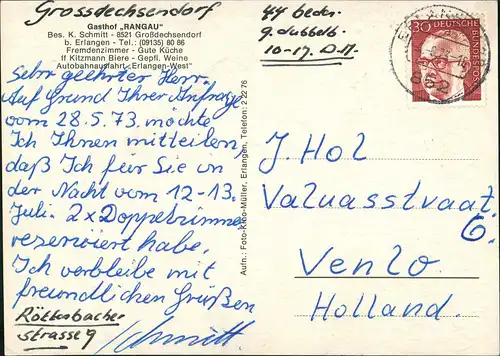 Grossdechsendorf
Gasthof „RANGAU"
Bes. K. Schmitt - 8521 Großdechsendorf
b. Erlangen - Tel.: (09135) 80 86
Fremdenzimmer - Gute Küche
ff Kitzmann Biere - Gepfl. Weine
Autobahnausfahrt „Erlangen-West"
Sehr geehrter Herr.
Auf Grund Ihrer Anfrage
vom 28.5.73. möchte
Ich Ihnen mitteilen,
daß Ich für Sie in
der Nacht vom 12-13.
Juli. 2x Doppelzimmer
reserviert habe.
Ich verbleibe mit
freundlichen Grüßen
Schmitt.
Röttenbacher
strasse 9
Aufn.: Foto-Kleo-Müller, Erlangen, Telefon: 2 22 76
44 bedn.
9. dubbelb.
10-17. D.M.
30
DEUTSCHE
BUNDESPOST
852
J. Hol
Valuasstraat.
6.
Venlo.
Holland.